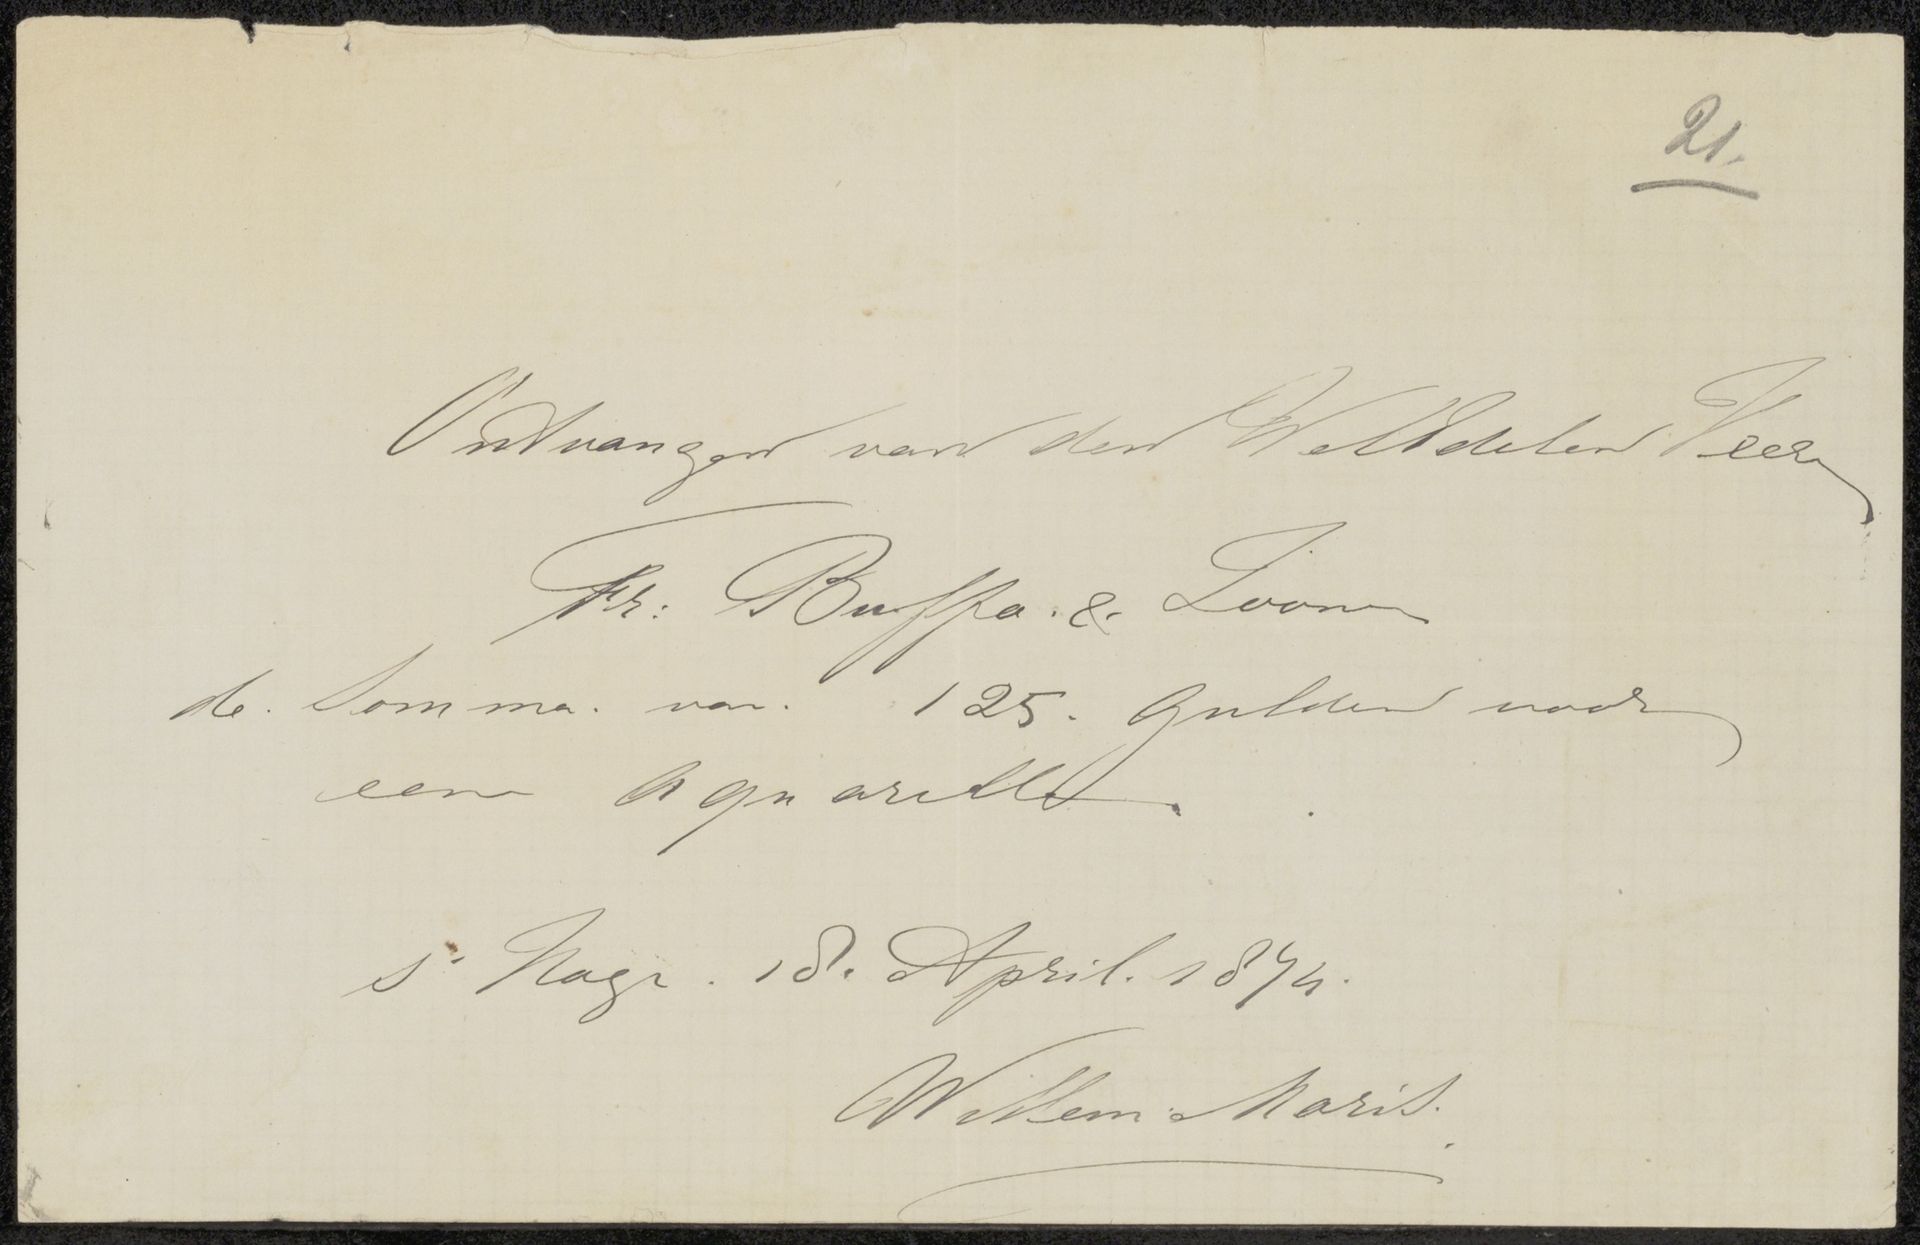 21.
Ontvangen van den WelEdelen Heer
Fr: Buffa. & Zoon
de. Somma. van. 125. gulden voor
een aquarelle.
s' Hage. 18. April. 1874.
Willem Maris.